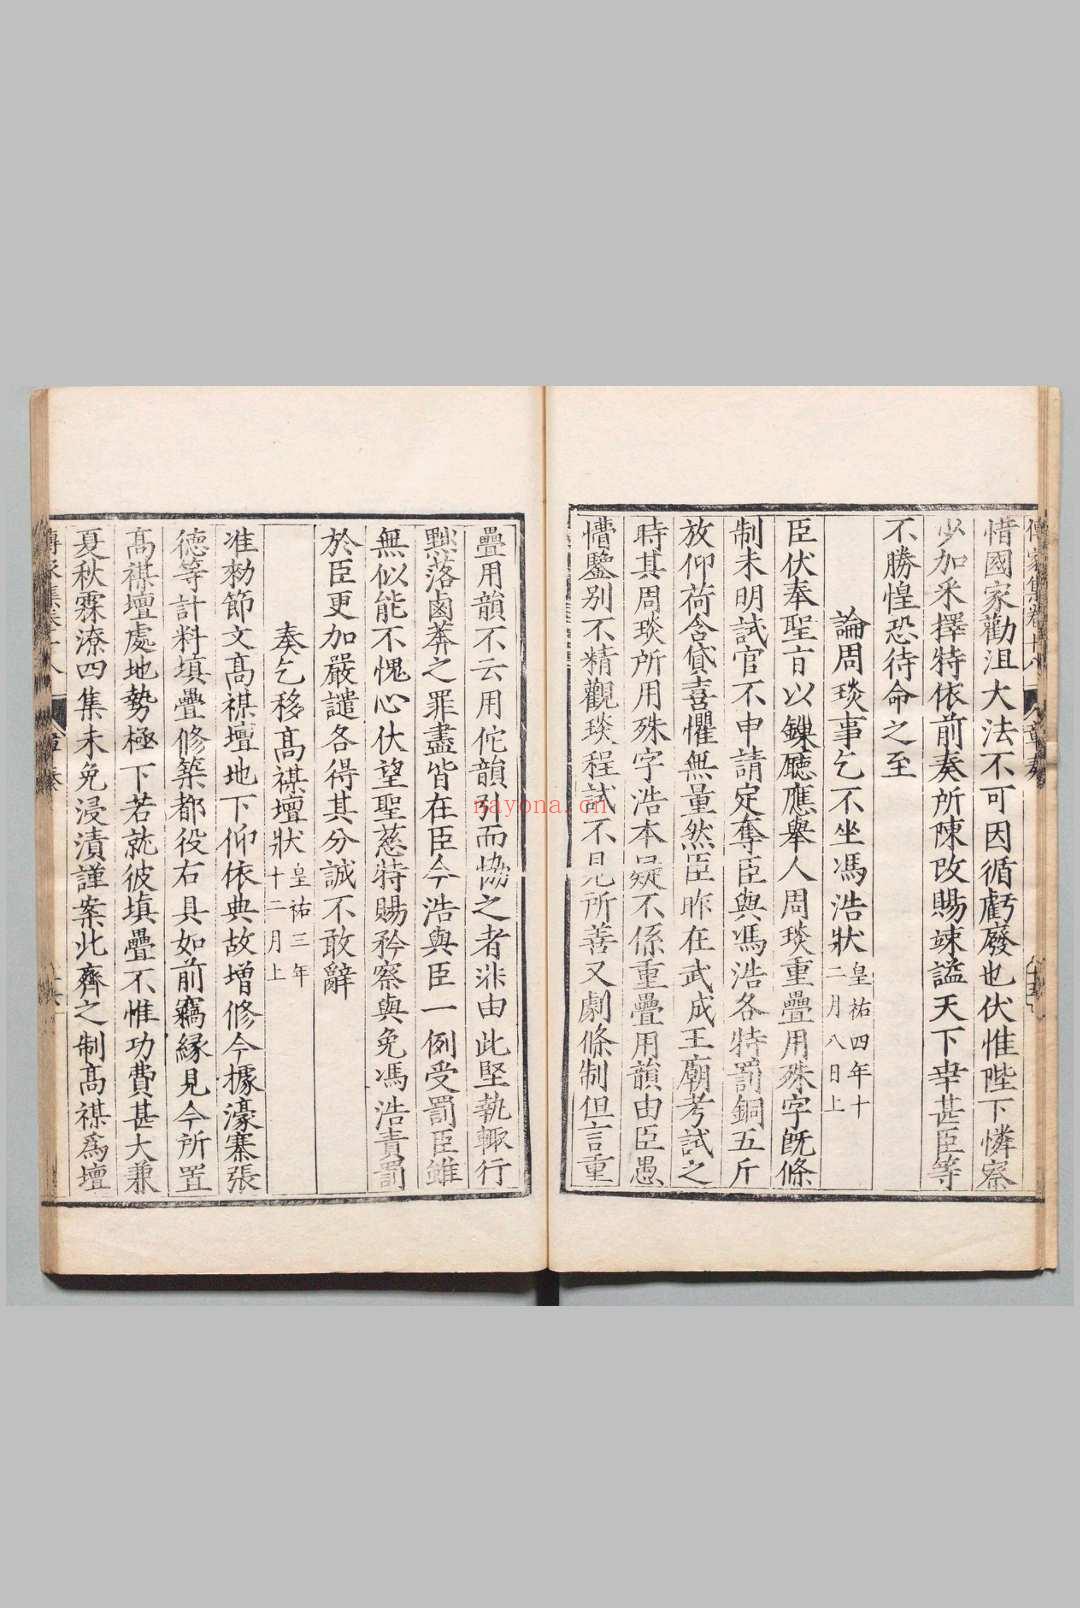 惜國家勸沮大法不可因循虧廢也伏惟陛下憐察
少加采擇特依前奏所陳改賜竦謚天下幸甚臣等
不勝惶恐待命之至
論周琰事乞不坐馮浩狀皇祐四年十二月八日上
臣伏奉聖旨以鏁廳應舉人周琰重疊用殊字旣條
制未明試官不申請定奪臣與馮浩各特罰銅五斤
放仰荷含貸喜懼無量然臣昨在武成王廟考試之
時其周琰所用殊字浩本疑不係重疊用韻由臣愚
懵鑒别不精觀琰程試不見所善又劇條制但言重
疊用韻不云用佗韻引而恊之者非由此堅執輙行
黙落鹵莽之罪盡皆在臣今浩與臣一例受罰臣雖
無似能不愧心伏望聖慈特賜矜察與免馮浩責罰
於臣更加嚴譴各得其分誠不敢辭
奏乞移髙禖壇狀皇祐三年十二月上
准勑節文髙禖壇地下仰依典故增修今據濠寨張
德等計料填疊修築都役右具如前竊緣見今所置
髙禖壇處地勢極下若就彼填疊不惟功費甚大兼
夏秋霖潦四集未免浸漬謹案北齊之制髙禖爲壇
nayona.cn